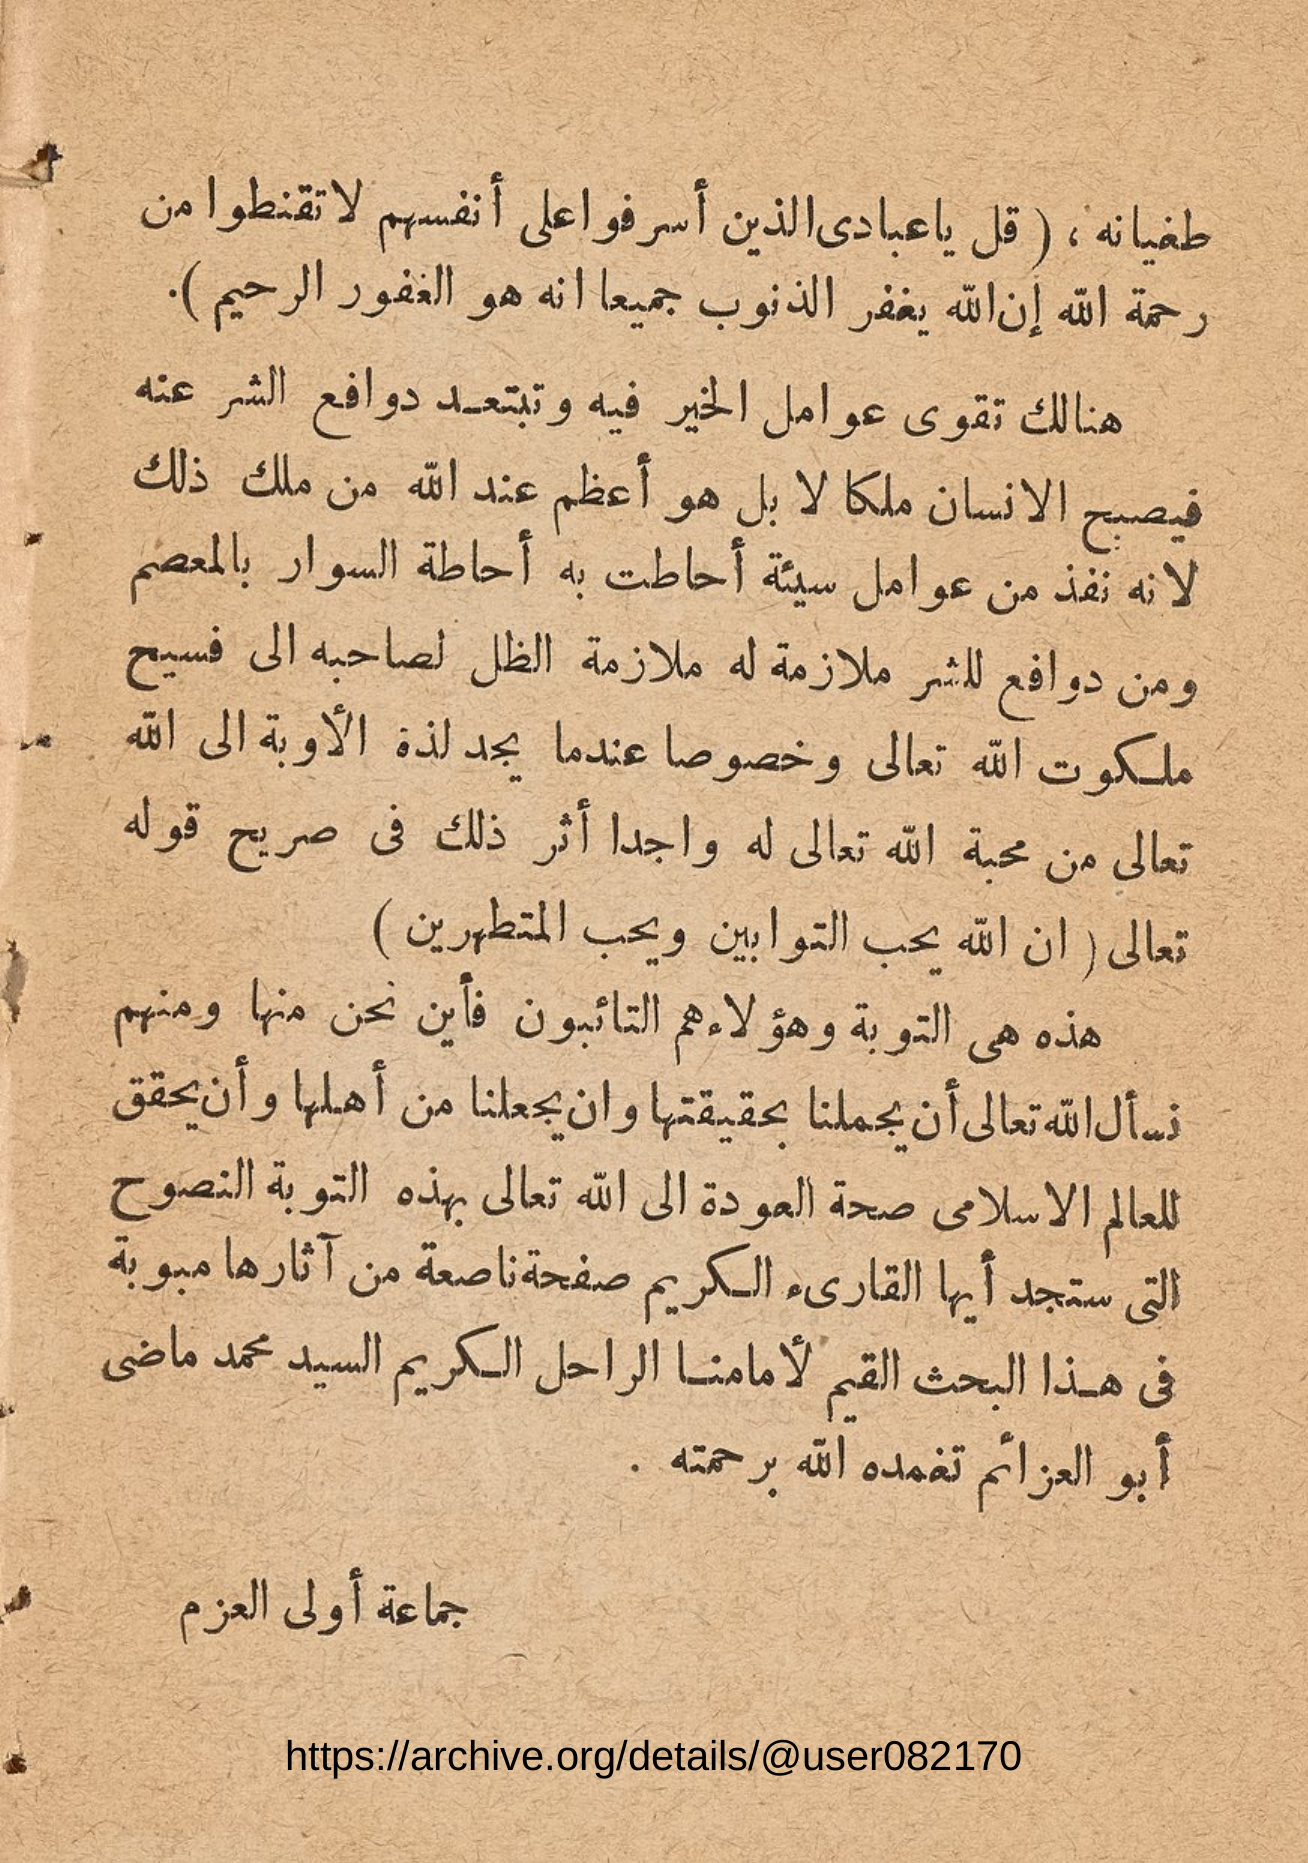 طغيانه ، ( قل ياعبادى الذين أسرفوا على أنفسهم لا تقنطوا من
رحمة الله إن الله يغفر الذنوب جميعا انه هو الغفور الرحيم ).
هنالك تقوى عوامل الخير فيه وتبتعد دوافع الشر عنه
فيصبح الانسان ملكا لا بل هو أعظم عند الله من ملك ذلك
لانه نفذ من عوامل سيئة أحاطت به أحاطة السوار بالمعصم
ومن دوافع للشر ملازمة له ملازمة الظل لصاحبه الى فسيح
ملكوت الله تعالى وخصوصا عندما يجد لذة الأوبة الى الله
تعالى من محبة الله تعالى له واجدا أثر ذلك فى صريح قوله
تعالى ( ان الله يحب التوابين ويحب المتطهرين )
هذه هى التوبة وهؤلاء هم التائبون فأين نحن منها ومنهم
نسأل الله تعالى أن يجملنا بحقيقتها وان يجعلنا من أهلها وأن يحقق
للعالم الاسلامى صحة العودة الى الله تعالى بهذه التوبة النصوح
التى ستجد أيها القارىء الكريم صفحة ناصعة من آثارها مبوبة
فى هذا البحث القيم لأمامنا الراحل الكريم السيد محمد ماضى
أبو العزائم تغمده الله برحمته .
جماعة أولى العزم
https://archive.org/details/@user082170